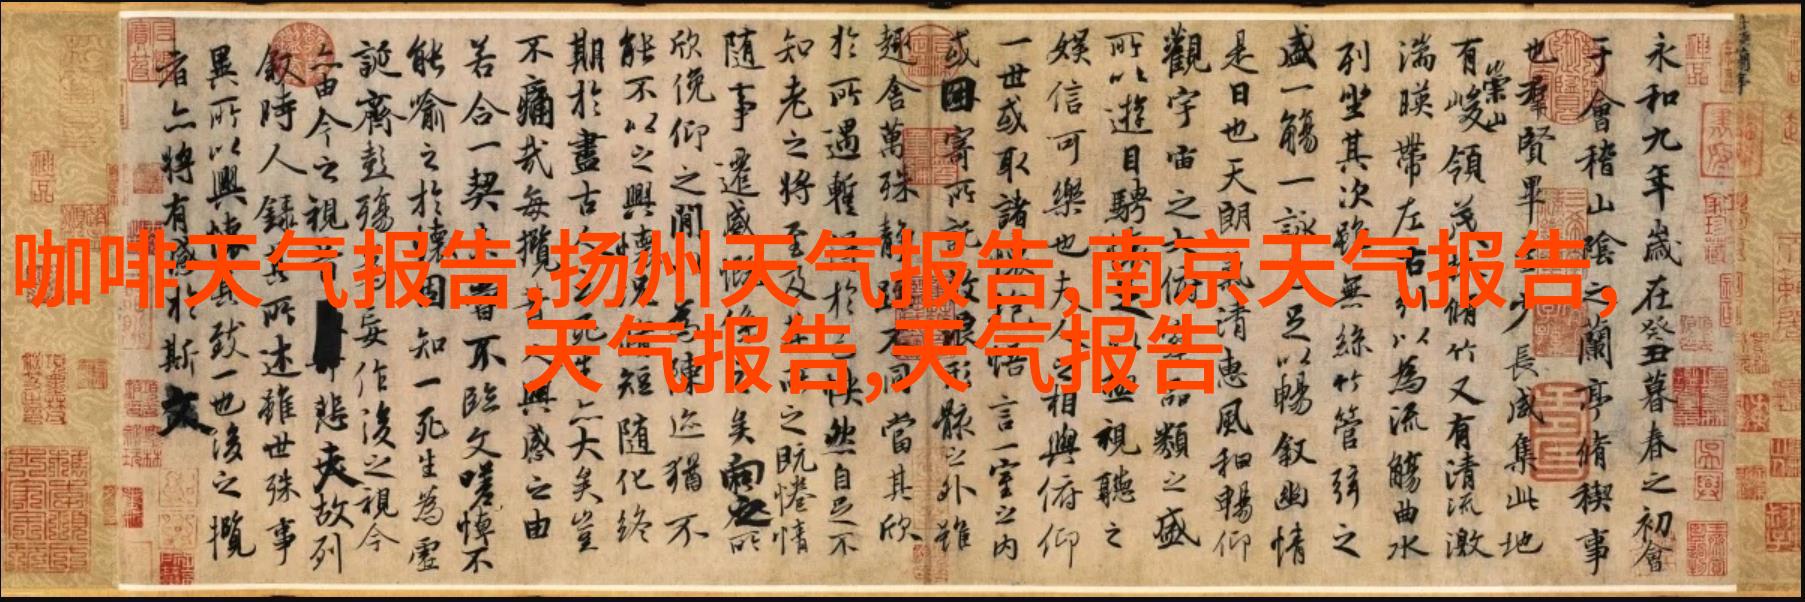 咖啡天气报告,扬州天气报告,南京天气报告,
天气报告,天气报告
永和九年歲在癸丑暮春之初會
于會稽山陰之蘭亭脩稧事
也羣賢畢至少長咸集此地
有崇山峻領茂林脩竹又有清流激
湍暎帶左右引以為流觴曲水
列坐其次雖無絲竹管弦之
盛一觴一詠亦足以暢敘幽情
是日也天朗氣清惠風和暢仰
觀宇宙之大俯察品類之盛
所以遊目騁懷足以極視聽之
娛信可樂也夫人之相與俯仰
一世或取諸懷抱悟言一室之內
或因寄所託放浪形骸之外雖
趣舍萬殊靜躁不同當其欣
於所遇暫得於己怏然自足不
知老之將至及其所之既惓情
隨事遷感慨係之矣向之所
欣俛仰之閒以為陳迹猶不
能不以之興懷況脩短隨化終
期於盡古人云死生亦大矣豈
不痛哉每攬昔人興感之由
若合一契未嘗不臨文嗟悼不
能喻之於懷固知一死生為虛
誕齊彭殤為妄作後之視今
亦由今之視昔悲夫故列
敘時人錄其所述雖世殊事
異所以興懷其致一也後之攬
者亦將有感於斯文